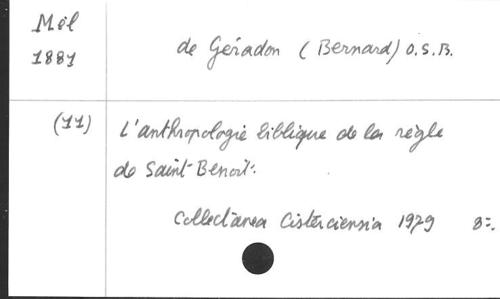 Mél
1881
de Géradon (Bernard) O.S.B.
(11)
L'anthropologie biblique de la règle
de Saint Benoît.
Collectanea Cisterciensia 1979 8=.